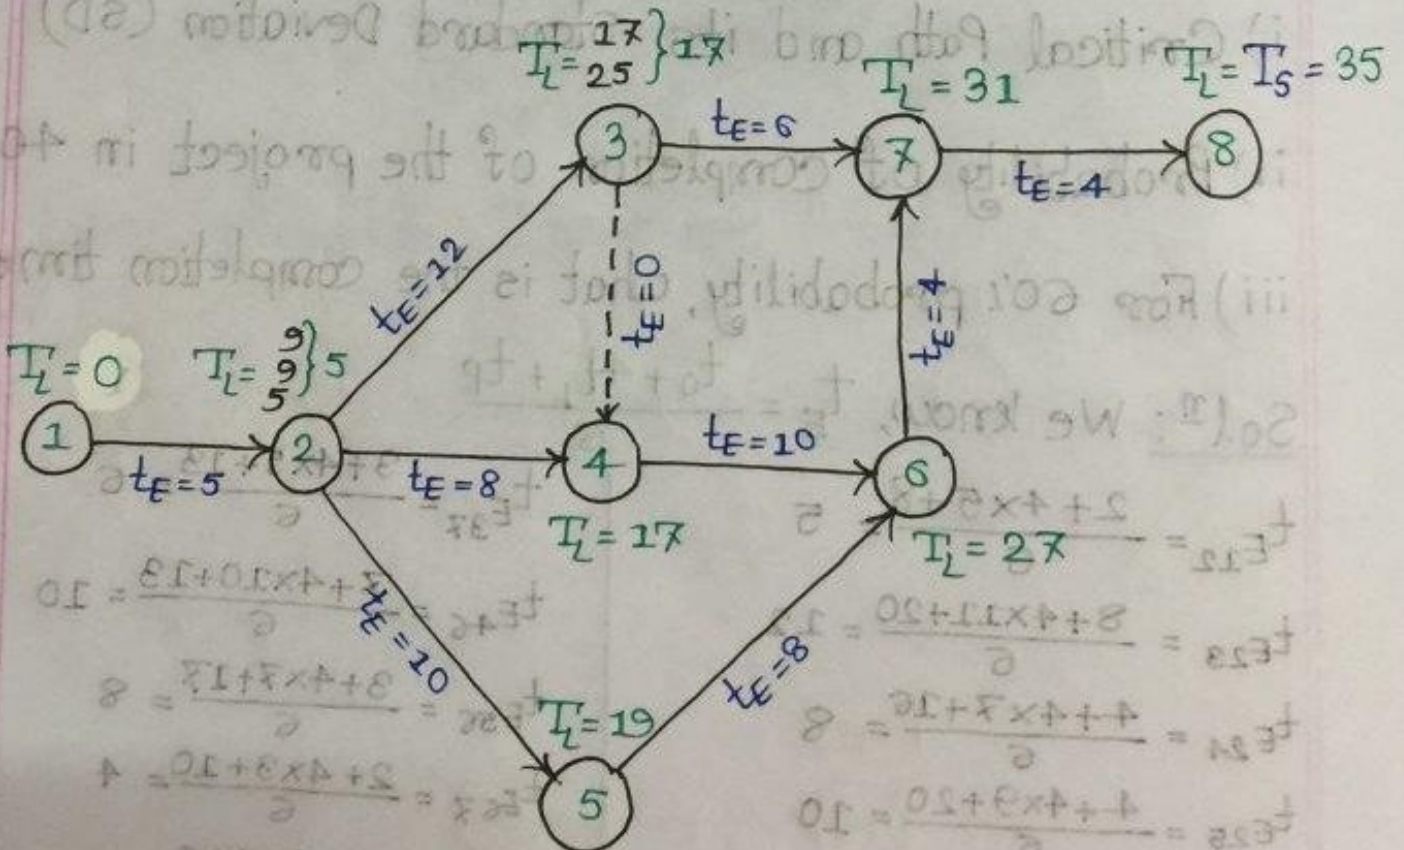 T_L = 17
25 } 17
T_L = 31
T_L = T_S = 35
3
t_E = 6
7
t_E = 4
8
t_E = 12
t_E = 0
t_E = 4
T_L = 0
T_L = 9
9
5 } 5
1
t_E = 5
2
t_E = 8
4
t_E = 10
6
T_L = 17
T_L = 27
t_E = 10
t_E = 8
T_L = 19
5